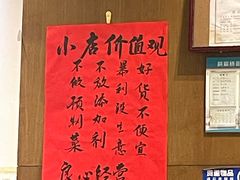 小店价值观
好货不便宜
暴利没生意
不放添加剂
不做预制菜
良心经营